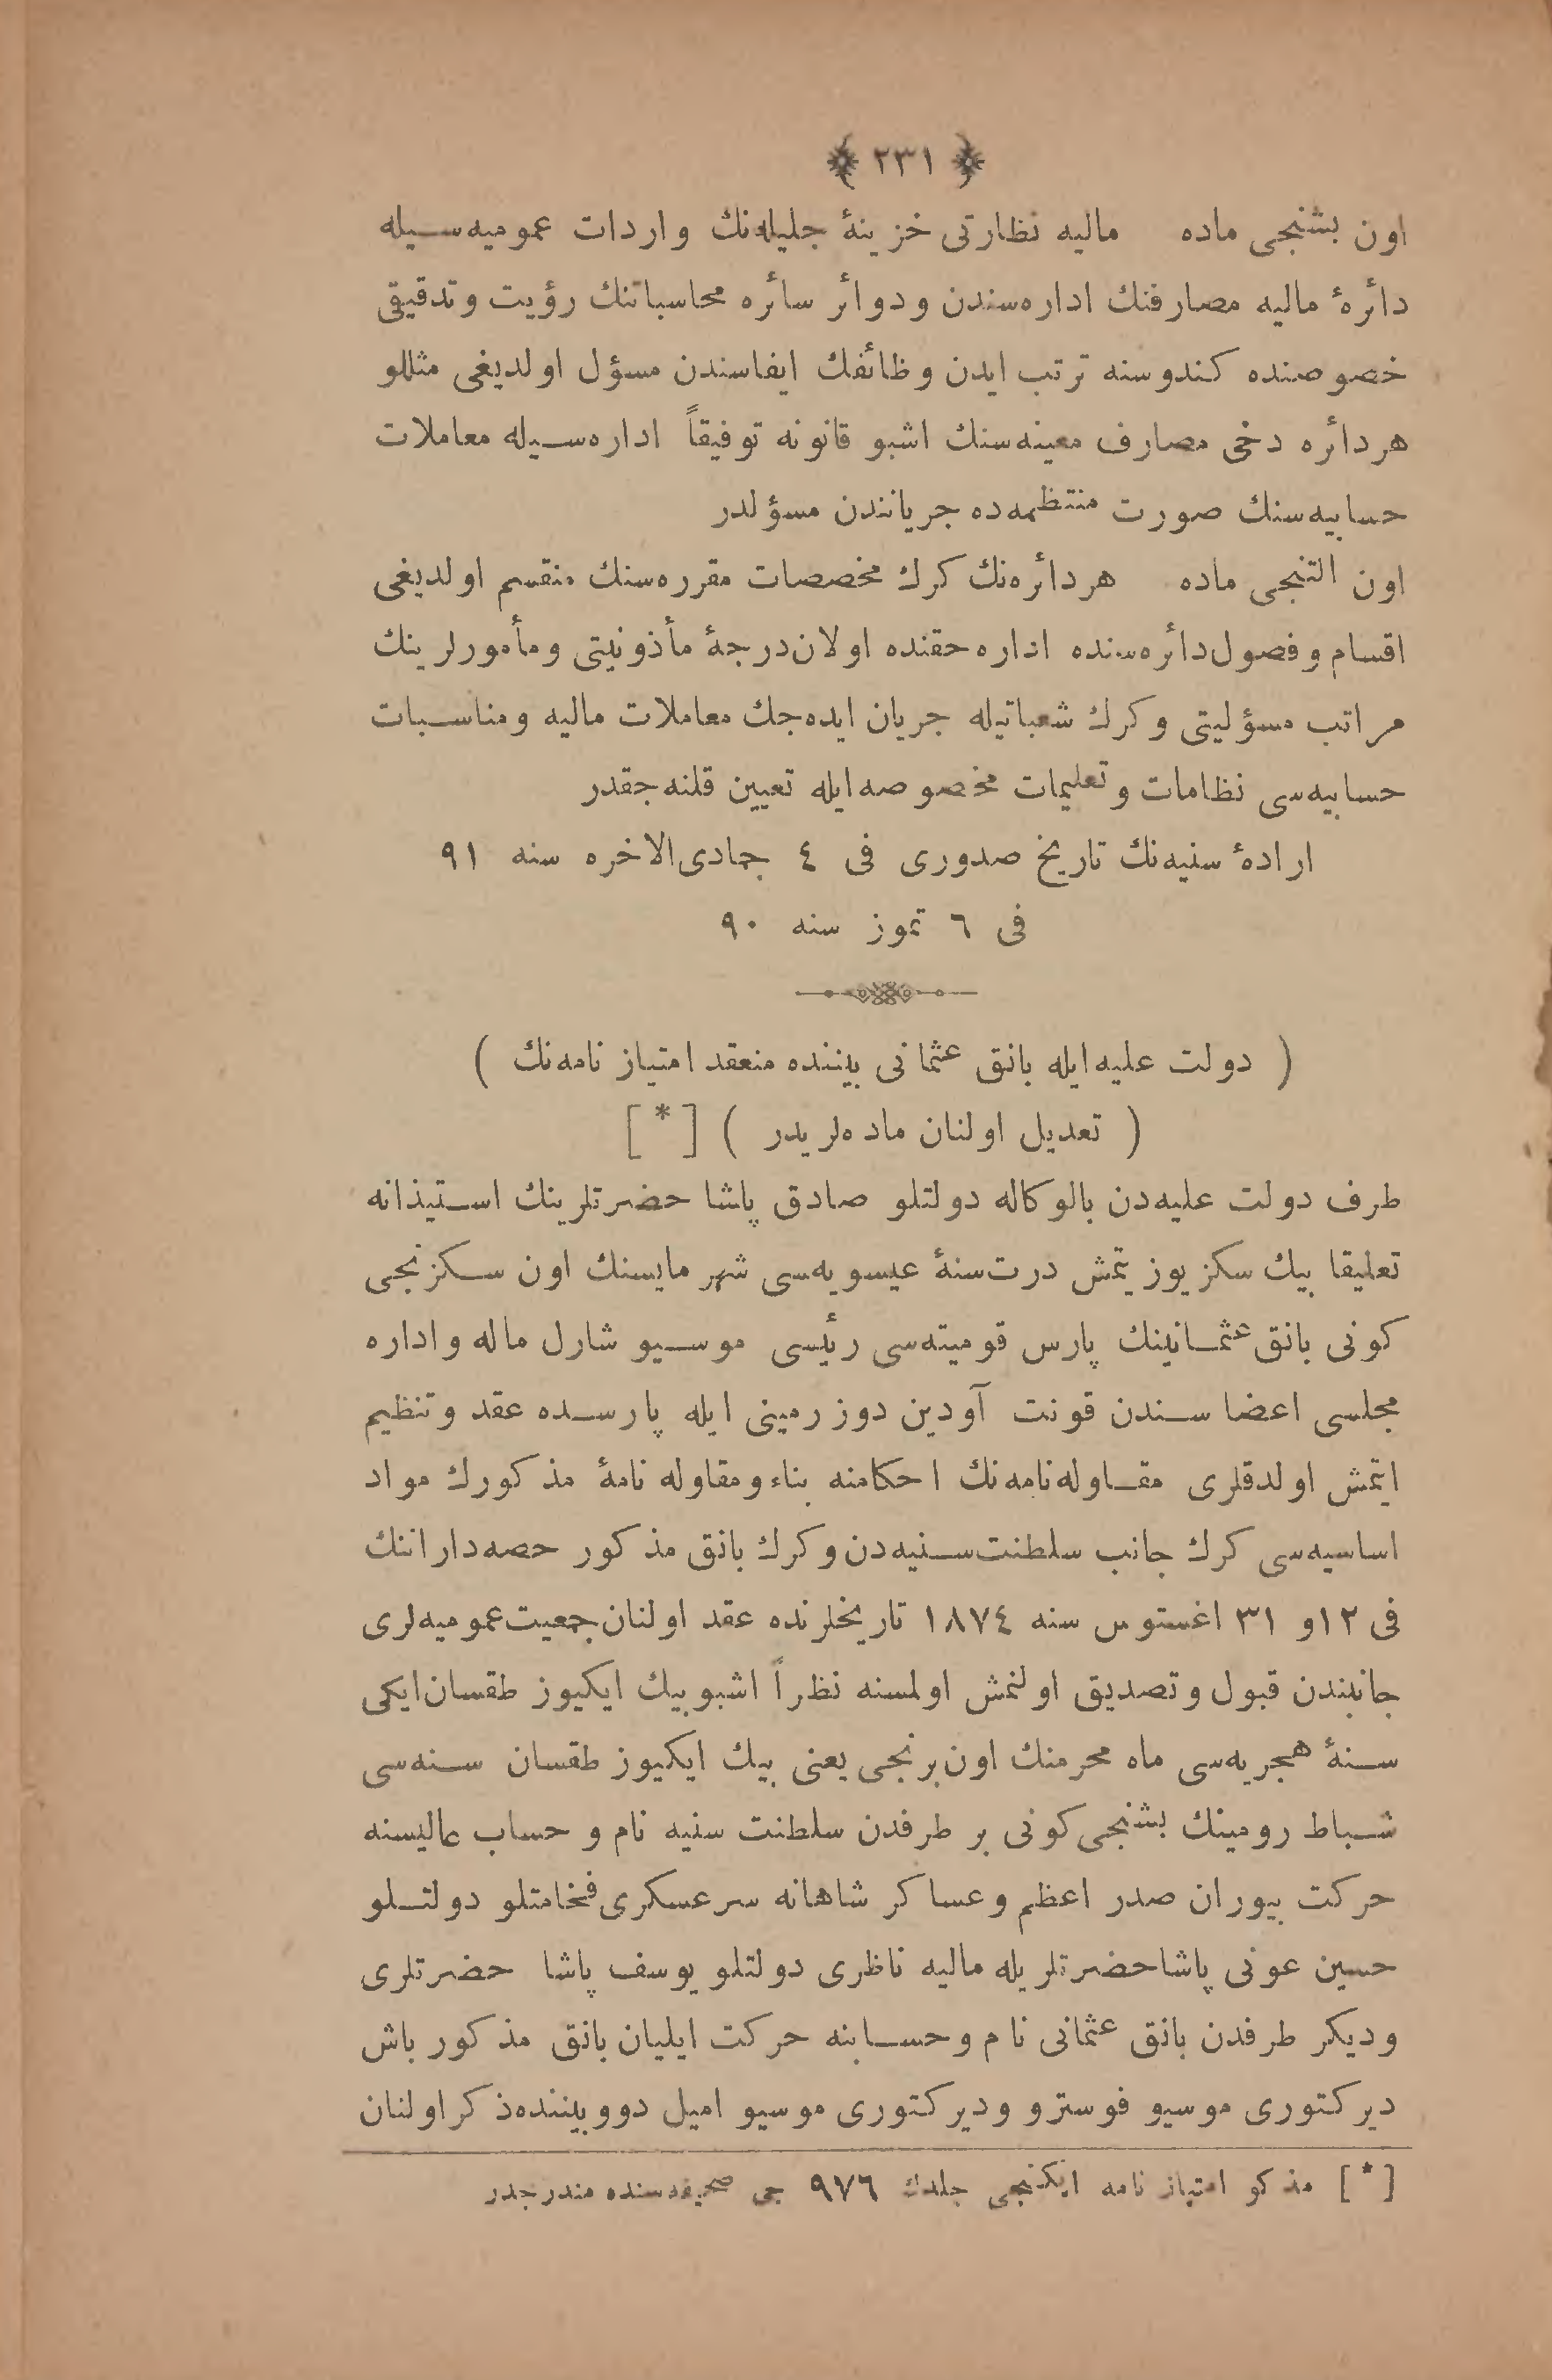 ﴿ ٢٣١ ﴾
اون بشنجی ماده   مالیه نظارتی خزینهٔ جلیله‌نك واردات عمومیه‌سیله
دائرهٔ مالیه مصارفنك اداره‌سندن ودوائر سائره محاسباتنك رؤیت وتدقیقی
خصوصنده كندوسنه ترتب ایدن وظائفك ایفاسندن مسؤل اولدیغی مثللو
هردائره دخی مصارف معینه‌سنك اشبو قانونه توفیقاً اداره‌سیله معاملات
حسابیه‌سنك صورت منتظمه‌ده جریانندن مسؤلدر
اون التنجی ماده   هردائره‌نك كرك مخصصات مقرره‌سنك منقسم اولدیغی
اقسام وفصول‌دائره‌سنده اداره‌حقنده اولان‌درجهٔ مأذونیتی ومأمورلرینك
مراتب مسؤلیتی وكرك شعباتیله جریان ایده‌جك معاملات مالیه ومناسبات
حسابیه‌سی نظامات وتعلیمات مخصوصه‌ایله تعیین قلنه‌جقدر
ارادهٔ سنیه‌نك تاریخ صدوری فی ٤ جمادی‌الاخره سنه ٩١
فی ٦ تموز سنه ٩٠
( دولت علیه‌ایله بانق عثمانی بیننده منعقد امتیاز نامه‌نك )
( تعدیل اولنان ماده‌لریدر ) [ * ]
طرف دولت علیه‌دن بالوكاله دولتلو صادق پاشا حضرتلرینك استیذانه
تعلیقا بیك سكزیوز یتمش درت‌سنهٔ عیسویه‌سی شهر مایسنك اون سكزنجی
كونی بانق عثمانینك پارس قومیته‌سی رئیسی موسیو شارل ماله واداره
مجلسی اعضاسندن قونت آودین دوزرمینی ایله پارسده عقد وتنظیم
ایتمش اولدقلری مقاوله‌نامه‌نك احكامنه بناء ومقاوله نامهٔ مذكورك مواد
اساسیه‌سی كرك جانب سلطنت‌سنیه‌دن وكرك بانق مذكور حصه‌دارانك
فی ١٢و ٣١ اغستوس سنه ١٨٧٤ تاریخلرنده عقد اولنان‌جمعیت‌عمومیه‌لری
جانبندن قبول وتصدیق اولنمش اولمسنه نظراً اشبوبیك ایكیوز طقسان‌ایكی
سنهٔ هجریه‌سی ماه محرمنك اون‌برنجی یعنی بیك ایكیوز طقسان سنه‌سی
شباط رومینك بشنجی‌كونی بر طرفدن سلطنت سنیه نام و حساب عالیسنه
حركت بیوران صدر اعظم وعساكر شاهانه سرعسكری‌فخامتلو دولتلو
حسین عونی پاشاحضرتلریله مالیه ناظری دولتلو یوسف پاشا حضرتلری
ودیكر طرفدن بانق عثمانی نام وحسابنه حركت ایلیان بانق مذكور باش
دیركتوری موسیو فوسترو ودیركتوری موسیو امیل دووبیننده‌ذكراولنان
[ * ] مذكو امتیاز نامه ایكنجی جلدك ٩٧٦ جی صحیفه‌سنده مندرجدر